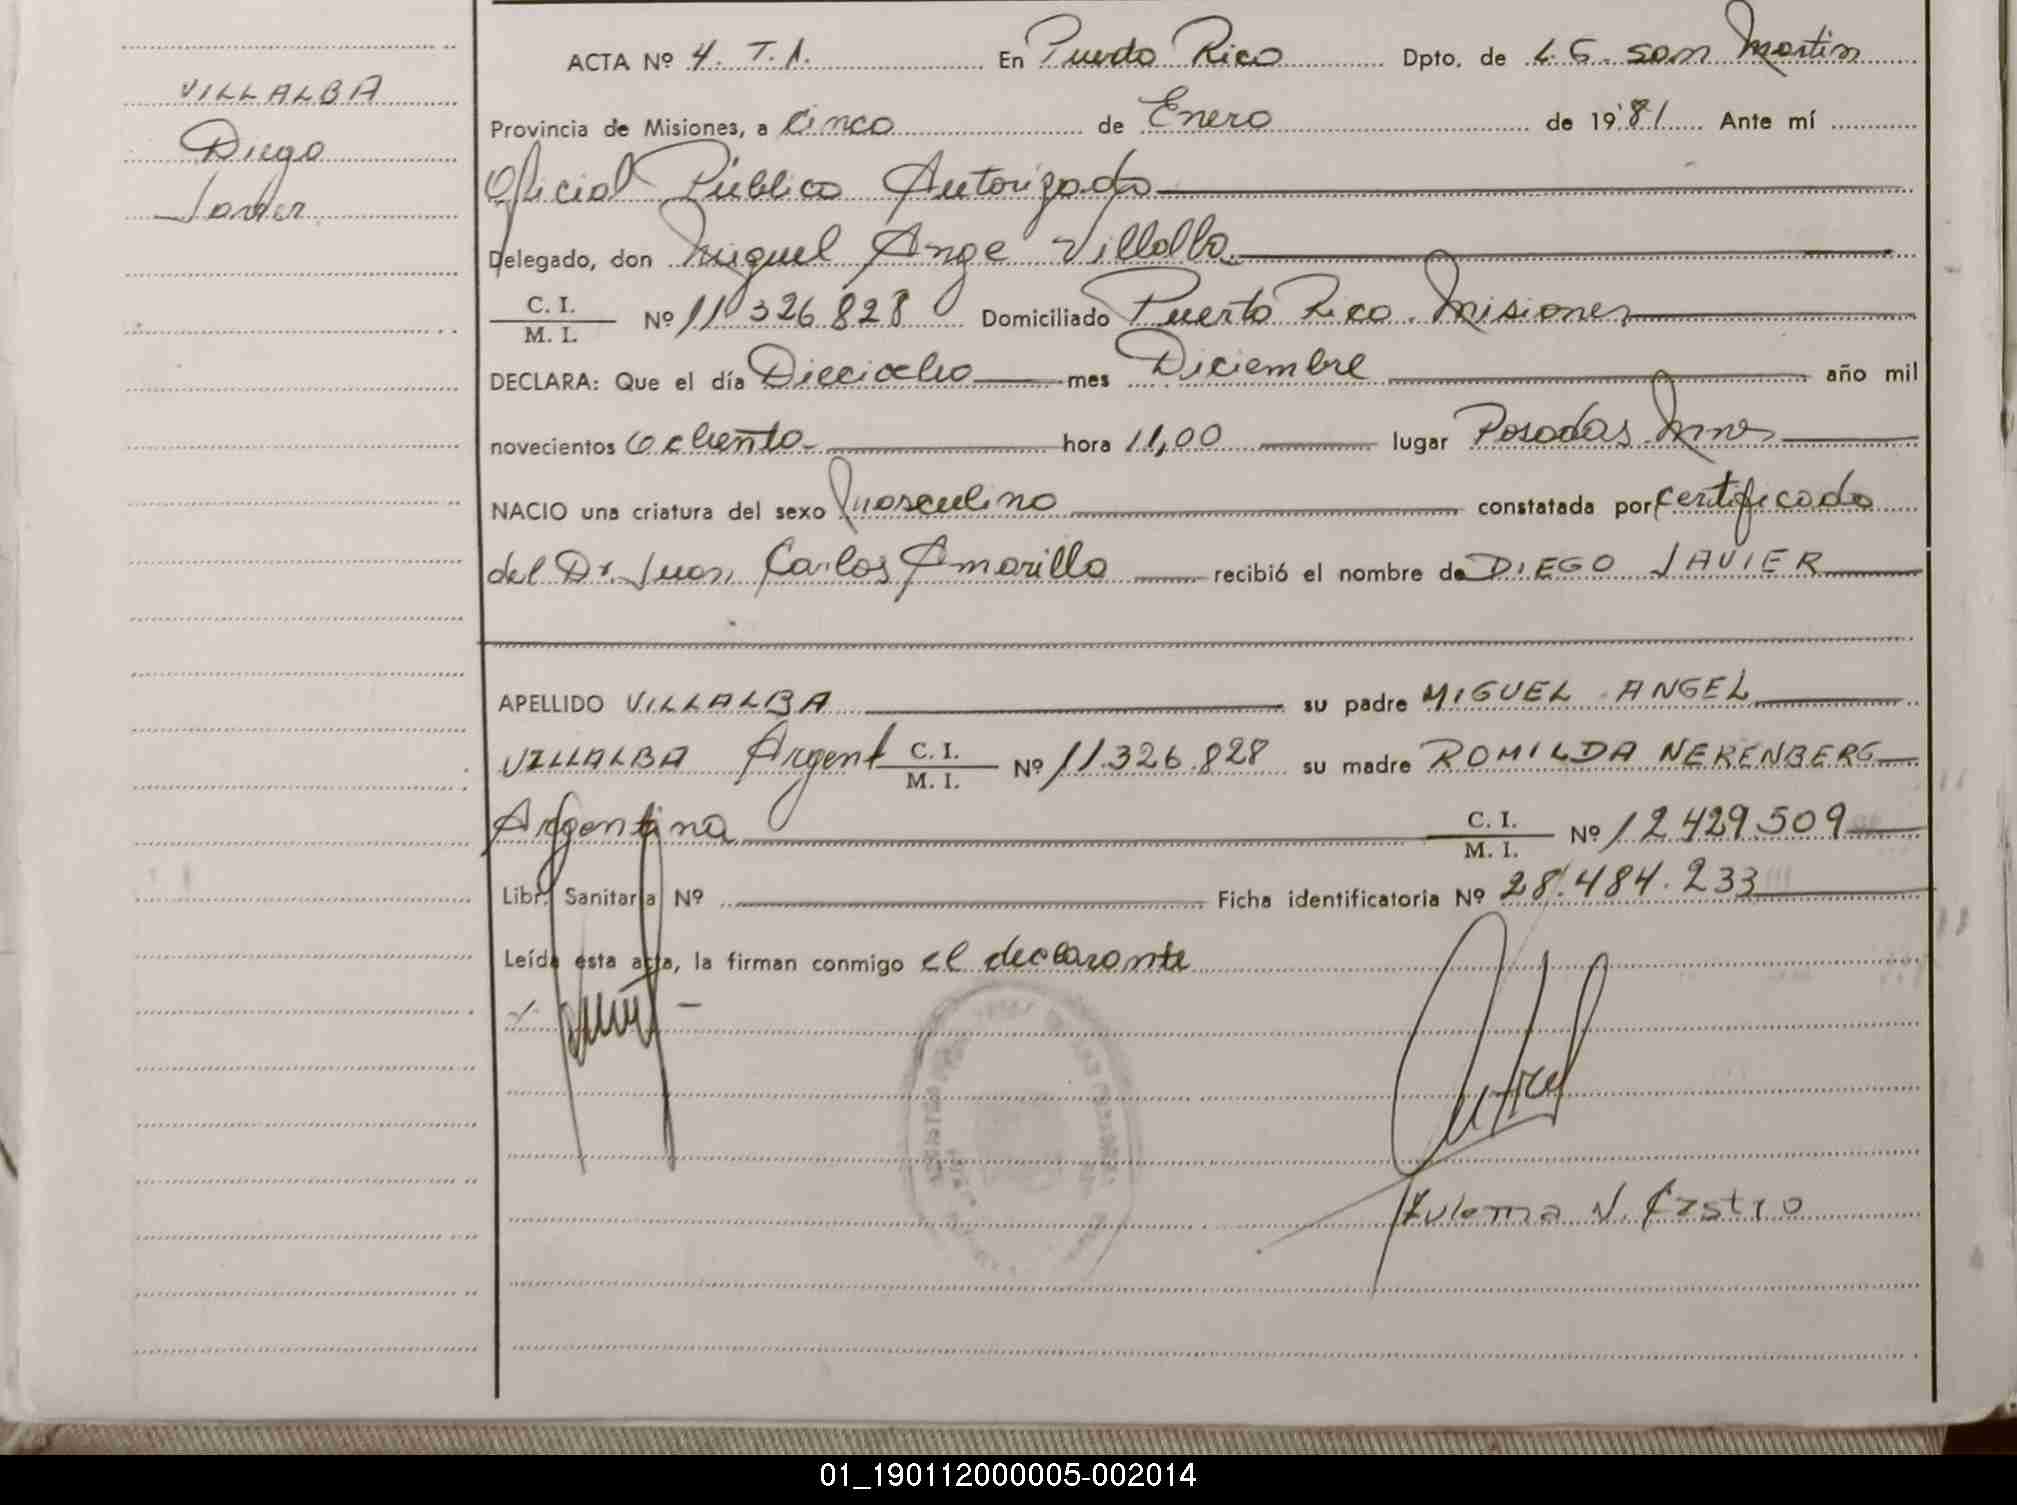 VILLALBA
Diego
Javier
ACTA Nº 4. T.1. En Puerto Rico Dpto. de L.G. San Martin
Provincia de Misiones, a Cinco de Enero de 1981 Ante mí
Oficial Público Autorizado
Delegado, don Miguel Ange Villalba
C. I.
M. I. Nº 11.326.828 Domiciliado Puerto Rico. Misiones
DECLARA: Que el día Dieciocho mes Diciembre año mil
novecientos Ochenta hora 11,00 lugar Posadas Mnes
NACIO una criatura del sexo Masculino constatada por certificado
del Dr. Juan Carlos Amarilla recibió el nombre de DIEGO JAVIER
APELLIDO VILLALBA su padre MIGUEL ANGEL
VILLALBA Argent C. I. M. I. Nº 11.326.828 su madre ROMILDA NERENBERG
Argentina C. I. M. I. Nº 12.429.509
Libr. Sanitaria Nº Ficha identificatoria Nº 28.484.233
Leída esta acta, la firman conmigo el declarante
Zulema N. Castro
01_190112000005-002014